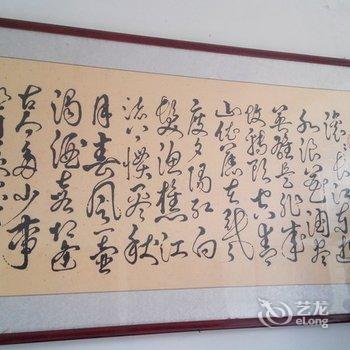 滚滚长江东逝
水浪花淘尽
英雄是非成
败转头空青
山依旧在几
度夕阳红白
发渔樵江
渚上惯看秋
月春风一壶
浊酒喜相逢
古今多少事
艺龙
eLong